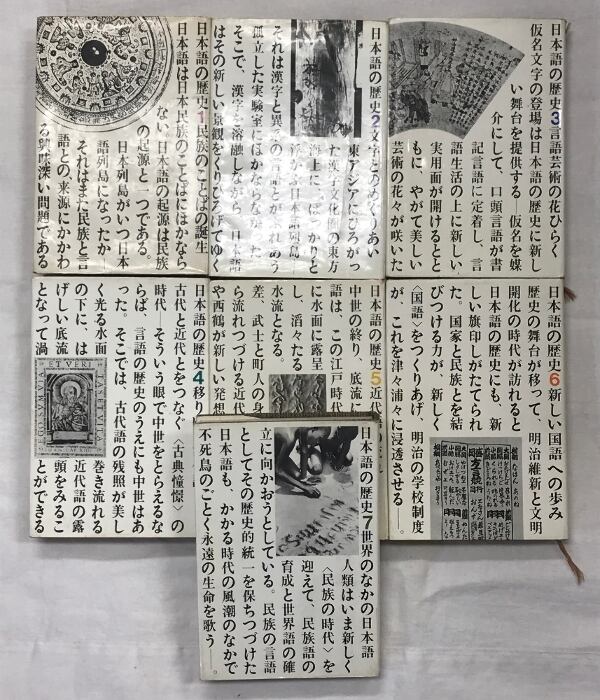 日本語の歴史1民族のことばの誕生
日本語は日本民族のことばにほかなら
ない。日本語の起源は民族
の起源と一つである。
日本列島がいつ日本
語列島になったか—
それはまた民族と言
語との、来源にかかわ
る興味深い問題である
日本語の歴史2文字とのめぐりあい
東アジアにひろがっ
た漢字文化圏の東方
海上に、ぽっかりと
浮かぶ日本語列島—
それは漢字と異質の言語とが
孤立した実験室にほかならなかった
そこで、漢字を溶融しながら、日本語
はその新しい景観をくりひろげてゆく
日本語の歴史3言語芸術の花ひらく
仮名文字の登場は日本語の歴史に新し
い舞台を提供する—仮名を媒
介にして、口頭言語が書
記言語に定着し、言
語生活の上に新しい
実用面が開けるとと
もに、やがて美しい
芸術の花々が咲いた
日本語の歴史4移り
古代と近代とをつなぐ〈古典憧憬〉の
時代—そういう眼で中世をとらえるな
らば、言語の歴史のうえにも中世はあ
った。そこでは、古代語の残照が美し
く光る水面
の下に、は
げしい底流
となって渦
巻き流れる
近代語の露
頭をみるこ
とができる
ET VERI
日本語の歴史5近代語の
中世の終り、底流に
語は、この江戸時代
に水面に露呈
し、滔々たる
水流となる。
差、武士と町人の身
ら流れつづける近代
や西鶴が新しい発想
日本語の歴史6新しい国語への歩み
歴史の舞台が移って、明治維新と文明
開化の時代が訪れると
日本語の歴史にも、新
しい旗印しがたてられ
た。国家と民族とを結
びつける力が、新しく
〈国語〉をつくりあげ、明治の学校制度
が、これを津々浦々に浸透させる—。
日本語の歴史7世界のなかの日本語
人類はいま新しく
〈民族の時代〉を
迎えて、民族語の
育成と世界語の確
立に向かおうとしている。民族の言語
としてその歴史的統一を保ちつづけた
日本語も、かかる時代の風潮のなかで
不死鳥のごとく永遠の生命を歌う—。